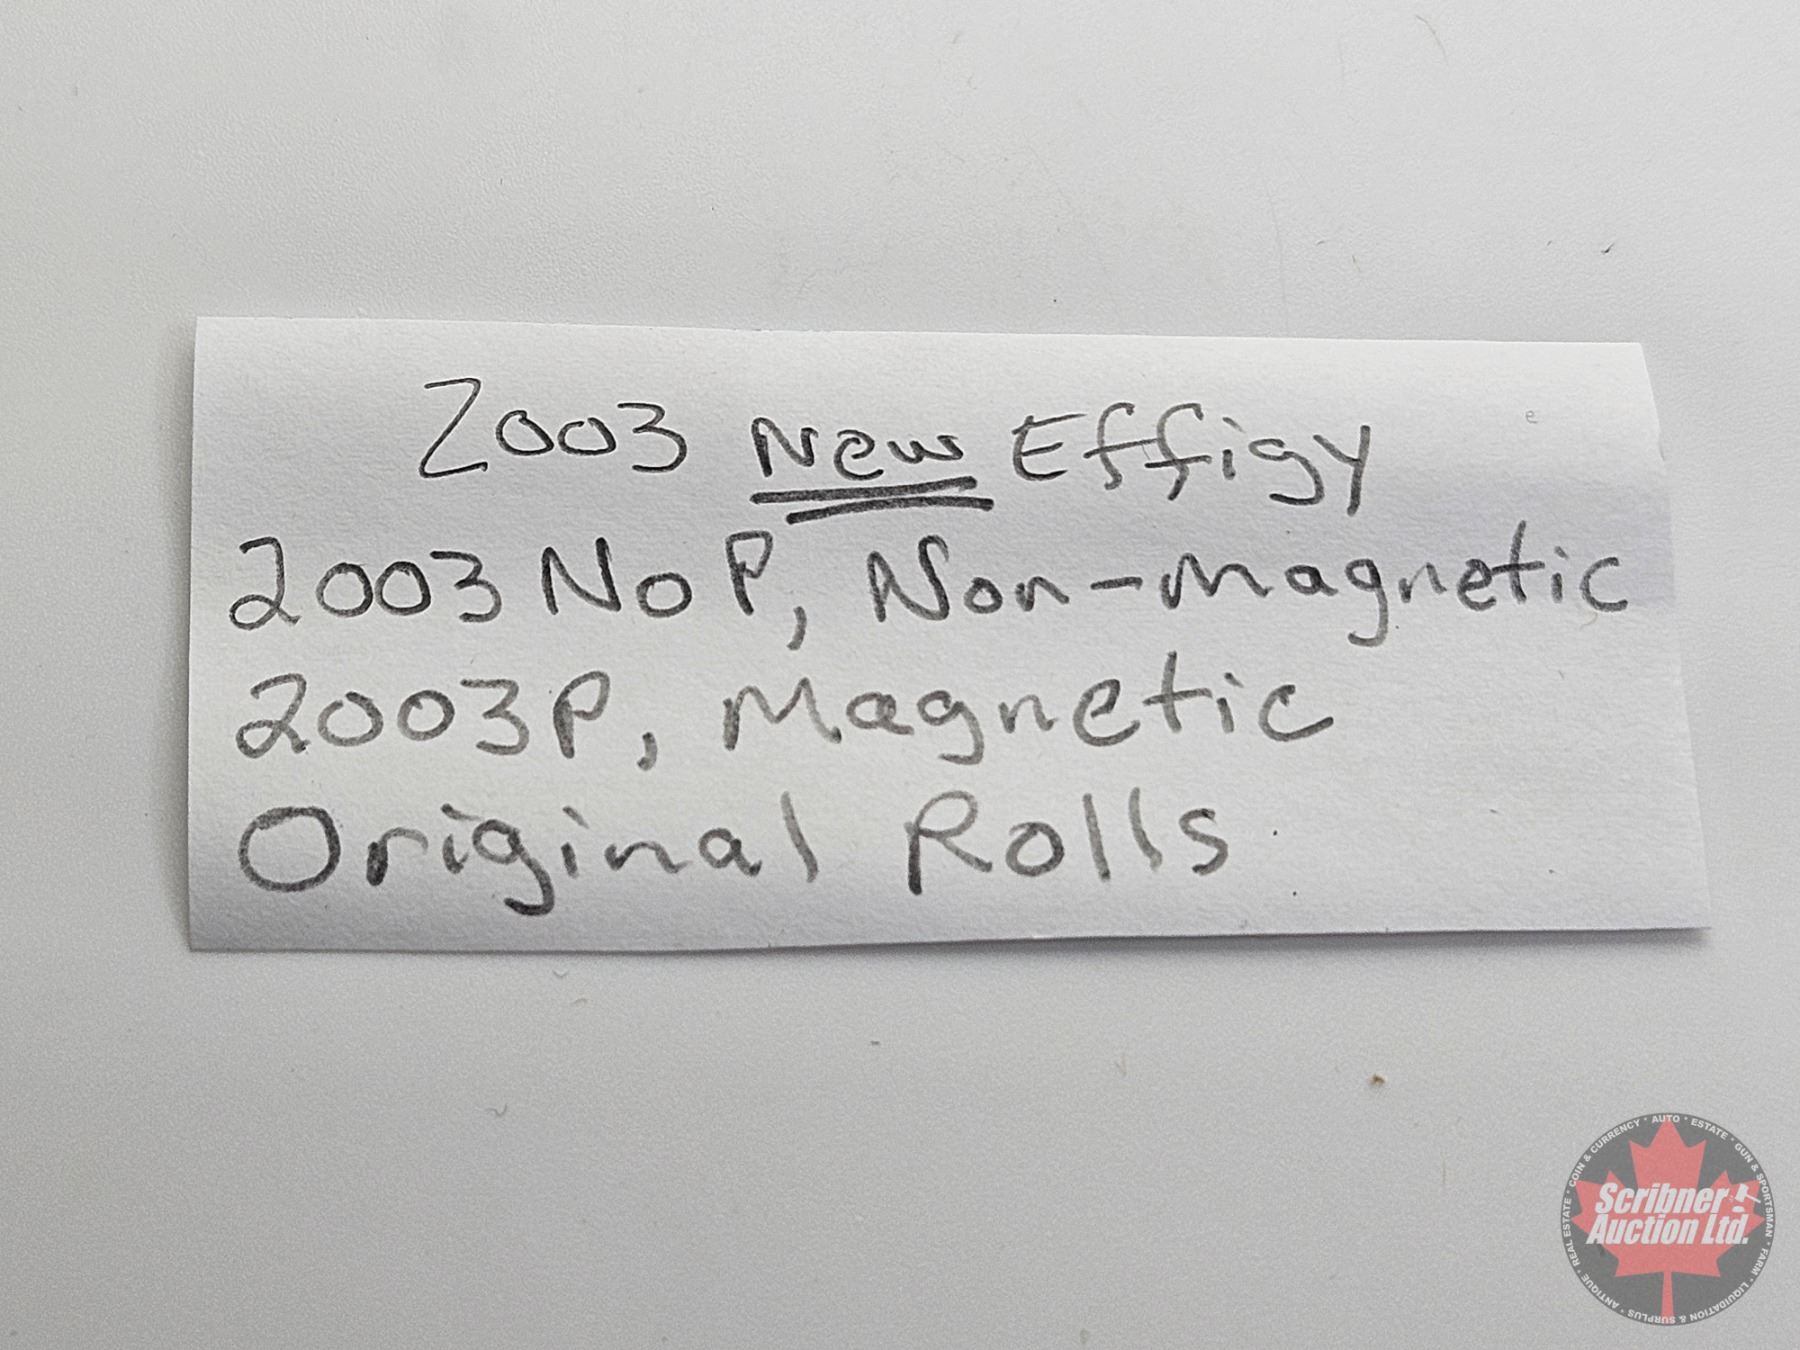 2003 New Effigy
2003 No P, Non-Magnetic
2003P, Magnetic
Original Rolls
Scribner
Auction Ltd.
COIN & CURRENCY • AUTO • ESTATE • GUN & SPORTSMAN • FARM • LIQUIDATION & SURPLUS • ANTIQUE • REAL ESTATE •